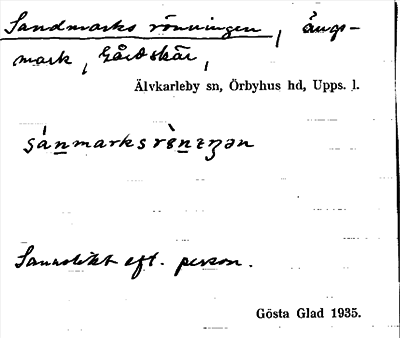 Sandmarks rönningen, ängs-
mark, Gårdskär,
Älvkarleby sn, Örbyhus hd, Upps. l.
sánmarksrènɩŋən
Sannolikt eft. person.
Gösta Glad 1935.